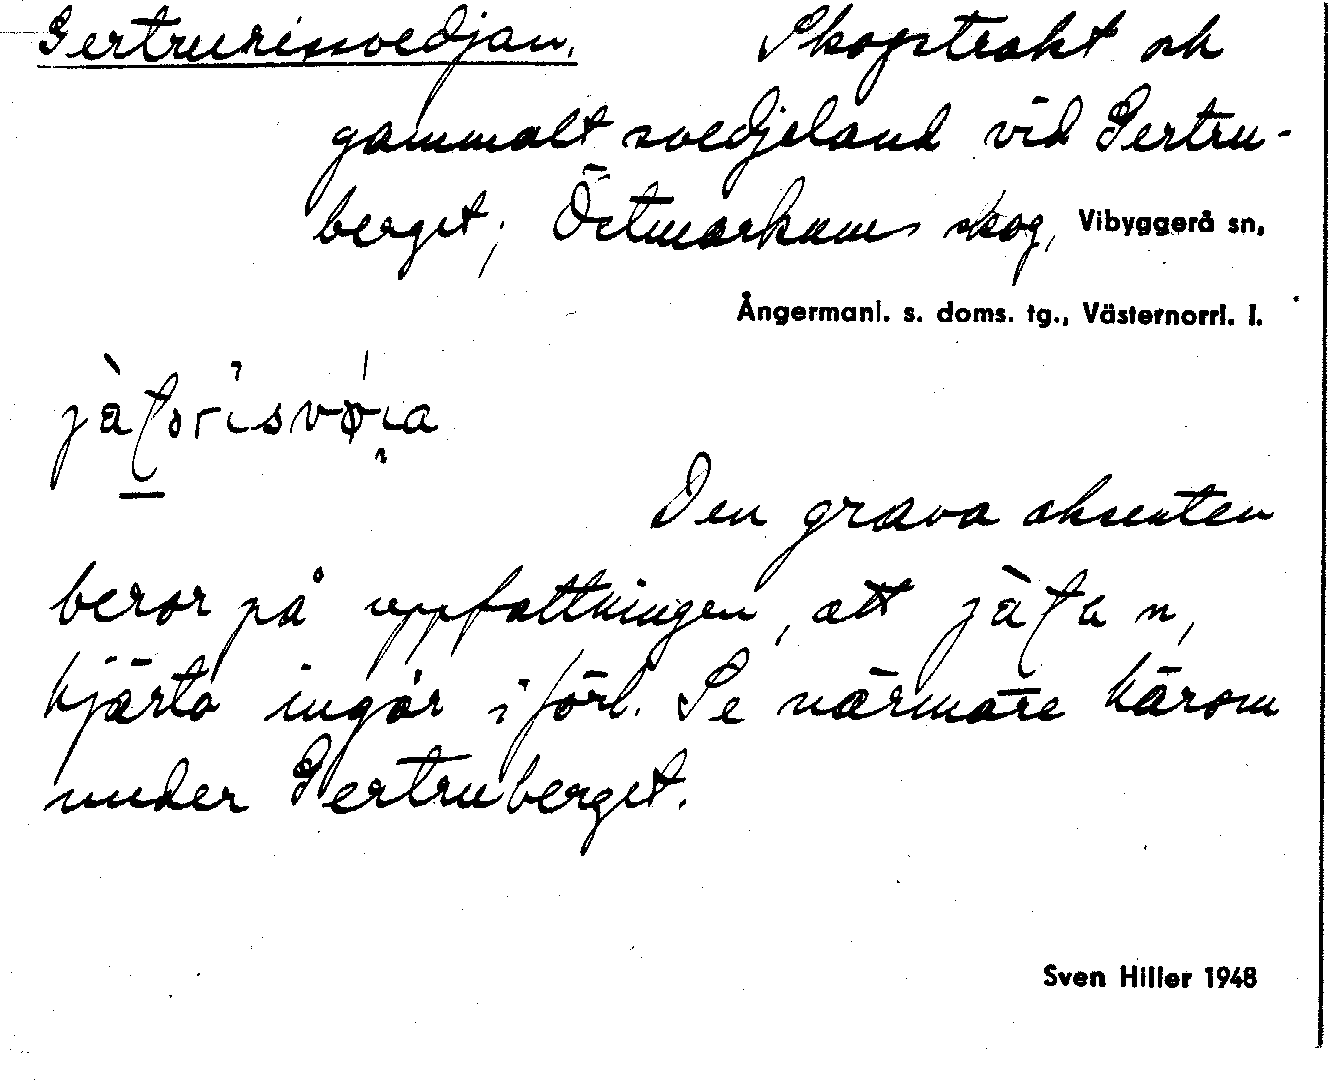 Gertrurisvedjan. Skogstrakt och
gammalt svedjeland vid Gertru-
berget; Östmarkums skog, Vibyggerå sn,
Ångermanl. s. doms. tg., Västernorrl. l.
Den grava aksenten
beror på uppfattningen, att n,
hjärta ingår i förl. Se närmare härom
under Gertruberget.
Sven Hiller 1948